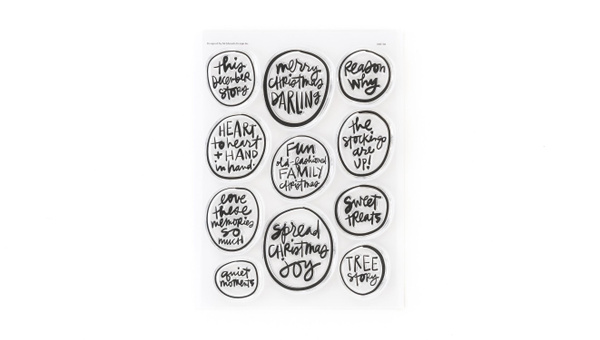 this
DECEMBER
STORY
merry
CHRISTMAS
DARLING
REASON
why
HEART
to heart
+ HAND
in hand
FUN
old-fashioned
FAMILY
Christmas
the
stockings
are
UP!
love
these
memories
so
much
spread
CHRISTMAS
JOY
sweet
TREATS
quiet
moments
TREE
STORY